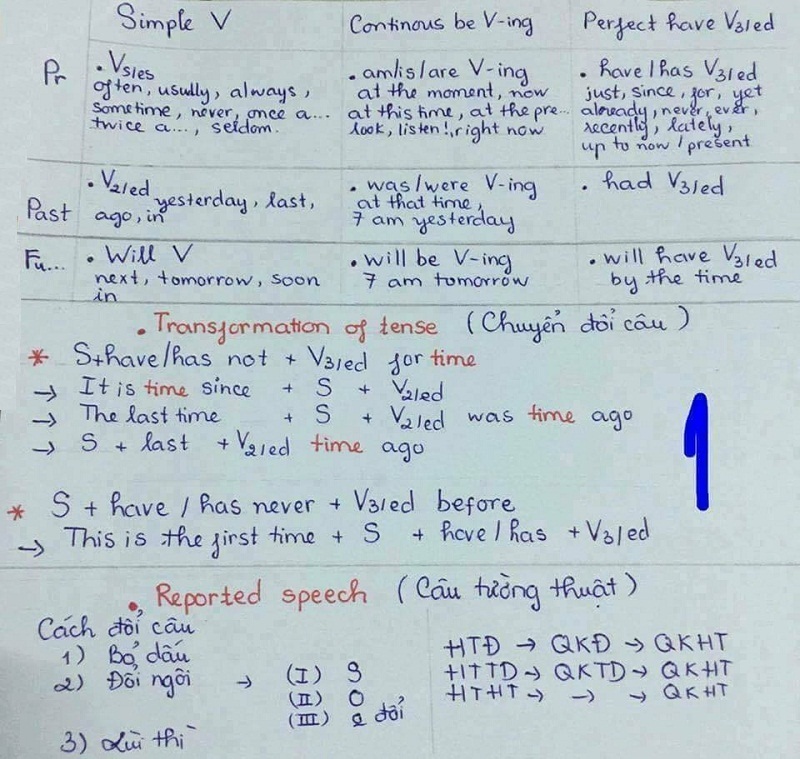 Simple V
Continous be V-ing
Perfect have V3/ed
Pr
• Vs/es
often, usully, always,
sometime, never, once a...
twice a..., seldom.
• am/is/are V-ing
at the moment, now
at this time, at the pre...
look, listen!, right now
• have/has V3/ed
just, since, for, yet
already, never, ever,
recently, lately,
up to now / present
Past
• V2/ed
yesterday, last,
ago, in
• was/were V-ing
at that time,
7 am yesterday
• had V3/ed
Fu...
• Will V
next, tomorrow, soon
in
• will be V-ing
7 am tomorrow
• will have V3/ed
by the time
• Transformation of tense (Chuyển đổi câu)
* S+have/has not + V3/ed for time
→ It is time since + S + V2/ed
→ The last time + S + V2/ed was time ago
→ S + last + V2/ed time ago
1
* S + have / has never + V3/ed before
→ This is the first time + S + have / has + V3/ed
• Reported speech (Câu tường thuật)
Cách đổi câu
1) Bỏ dấu
2) Đổi ngôi → (I) S
(II) O
(III) 2 đổi
3) Lùi thì
HTĐ → QKĐ → QKHT
HTTD → QKTD → QKHT
HTHT → → → QKHT